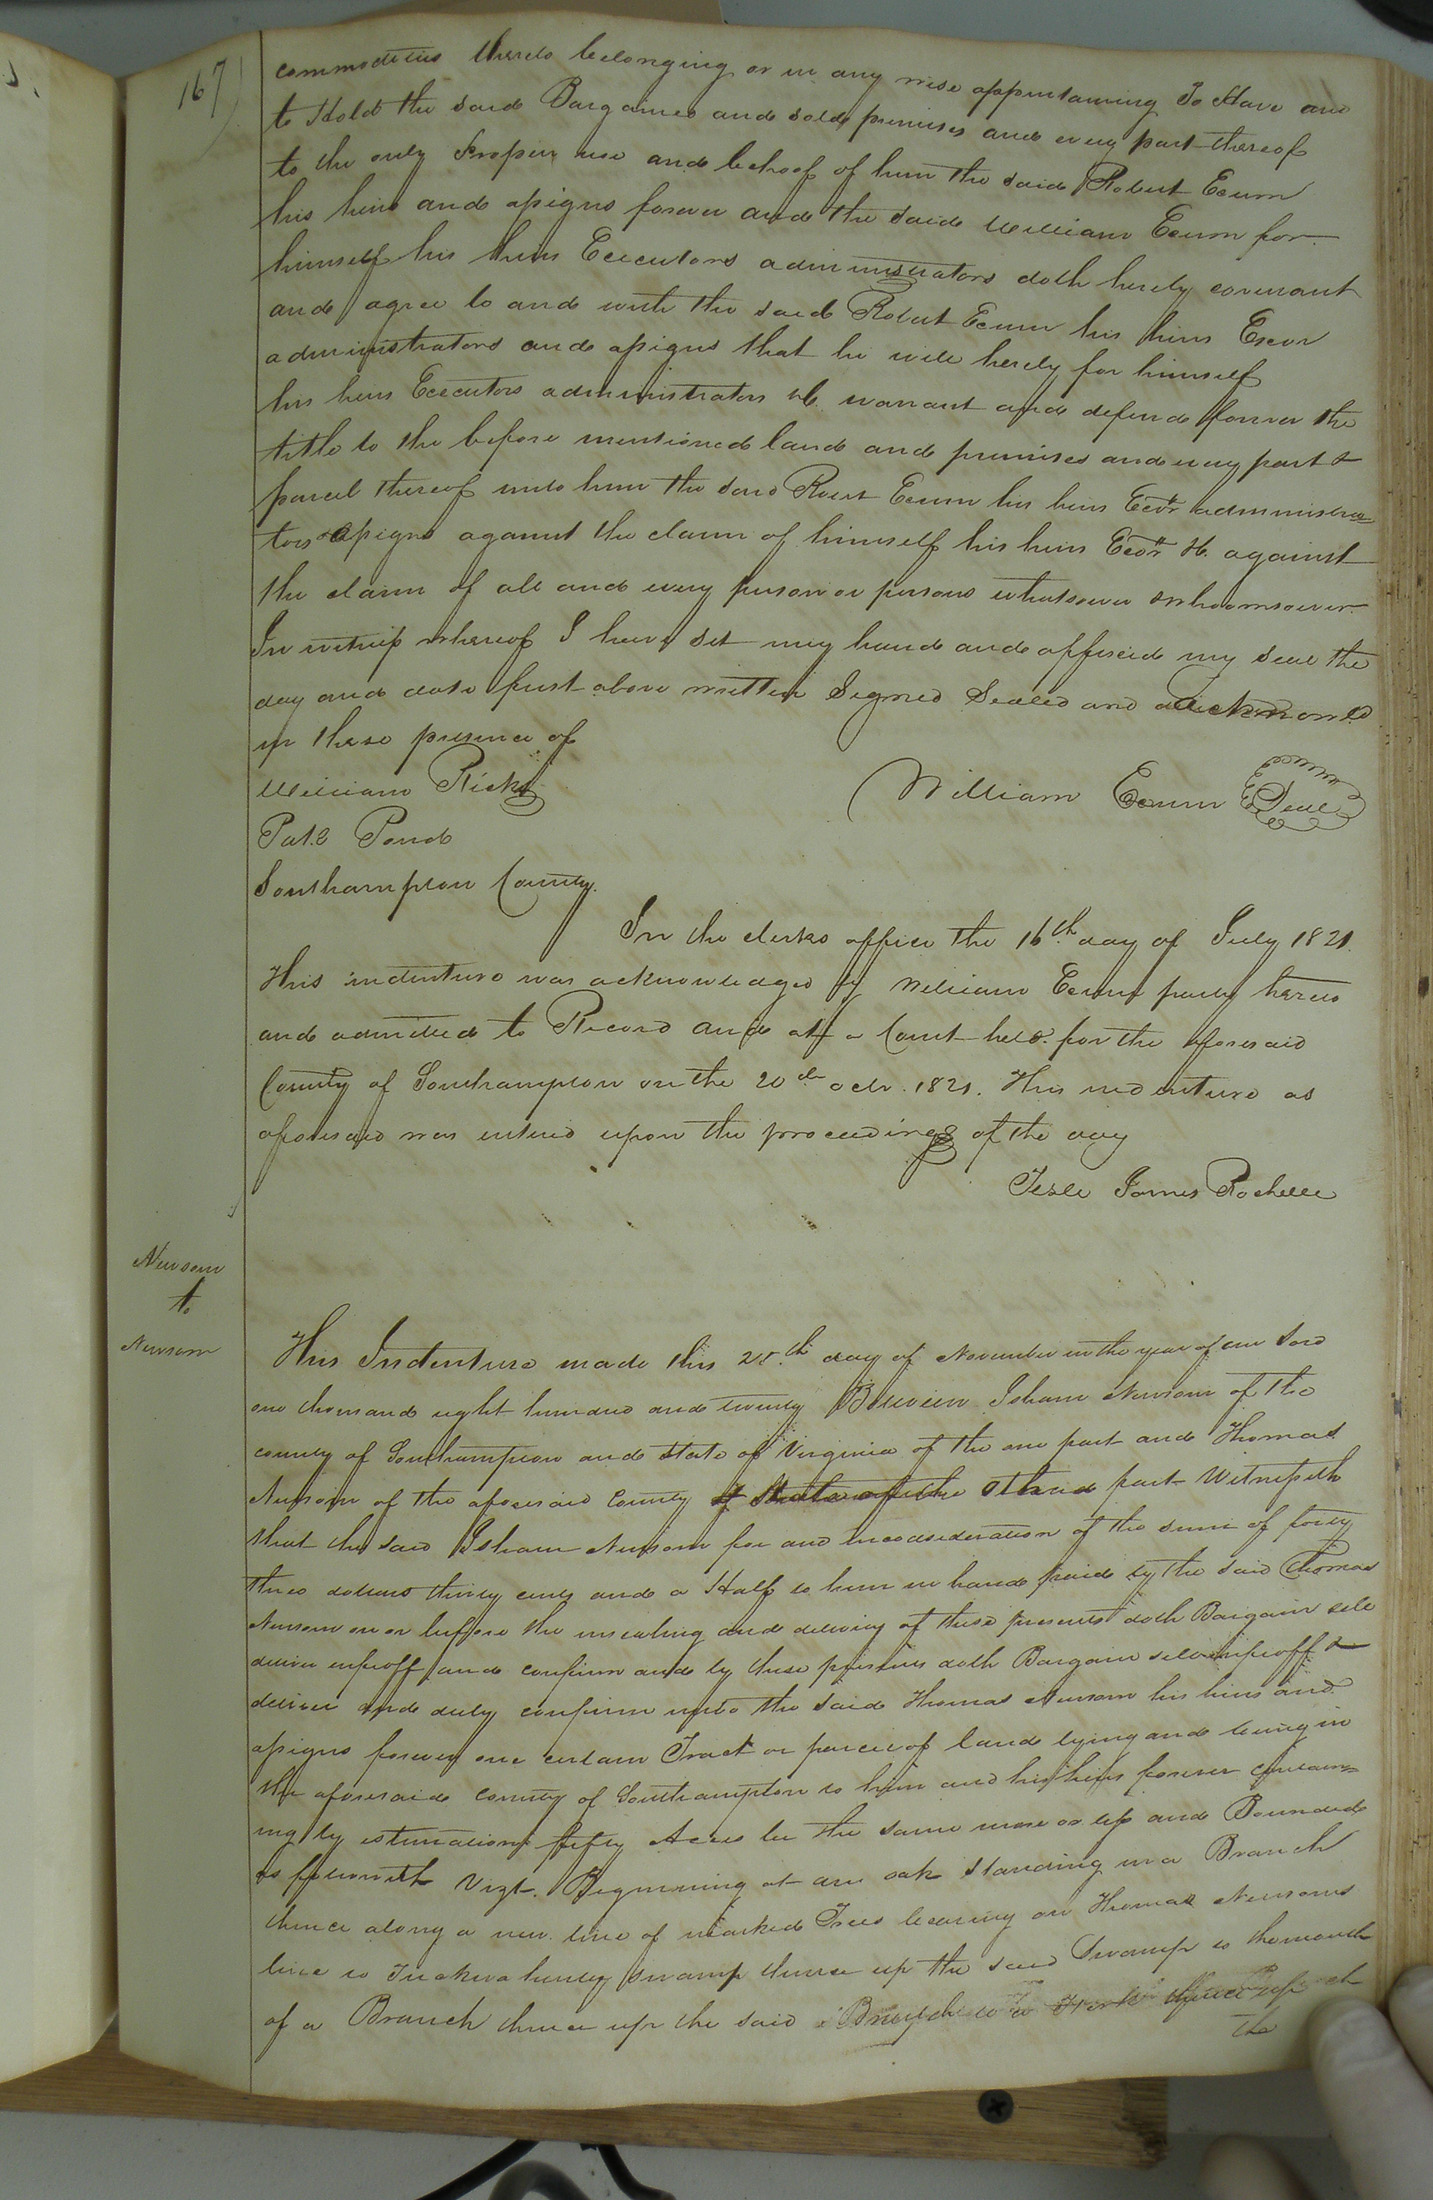 167)
commodities thereto belonging or in any wise appertaining To Have and
to Hold the said Bargained and sold premises and every part thereof
to the only Proper use and behoof of him the said Robert Ecum
his heirs and assigns forever and the said William Ecum for
himself his heirs Executors administrators doth hereby covenant
and agree to and with the said Robert Ecum his heirs Exeor
administrators and assigns that he will hereby for himself
his heirs Executors administrators &c. warrant and defend forever the
title to the before mentioned land and premises and every part &
parcel thereof unto him the said Robert Ecum his heirs Exors administra=
tors assigns against the claim of himself his heirs Exors &c. against
the claim of all and every person or persons whatsoever or whoomsoever
In witness whereof I have set my hand and affixed my seal the
day and date first above written Signed Sealed and acknowld
in these presence of
William Ricks
William Ecum Seal
Pat.k Pond
Southampton County.
In the clerks office the 16th day of July 1821.
This indenture was acknowledged by William Ecum party hereto
and admitted to Record and at a Court held for the aforesaid
County of Southampton on the 20th octr. 1821. This indenture as
aforesaid was entered upon the proceedings of the day
Teste James Rochelle
Newsom
to
Newsom
This Indenture made this 25.th day of November in the year of our Lord
one thousand eight hundred and twenty Between Isham Newsom of the
county of Southampton and State of Virginia of the one part and Thomas
Newsom of the aforesaid County & State of the other part Witnesseth
that the said Isham Newsom for and in consideration of the sum of forty
three dollars thirty cents and a Half to him in hand paid by the said Thomas
Newsom on or before the insealing and delivery of these presents doth Bargain sell
deliver infeoff and confirm and by these presents doth Bargain sell infeoff &
deliver and duly confirm unto the said Thomas Newsom his heirs and
assigns forever one certain Tract or parcel of land lying and being in
the aforesaid County of Southampton to him and his heirs forever contain=
ing by estimation fifty Acres be the same more or less and Bounded
as followeth Vizt. Beginning at an oak standing in a Branch
thence along a new line of marked Trees bearing on Thomas Newsoms
line to swamp thence up the said Swamp to the mouth
of a Branch thence up the said Branch to a Fork thence up
the